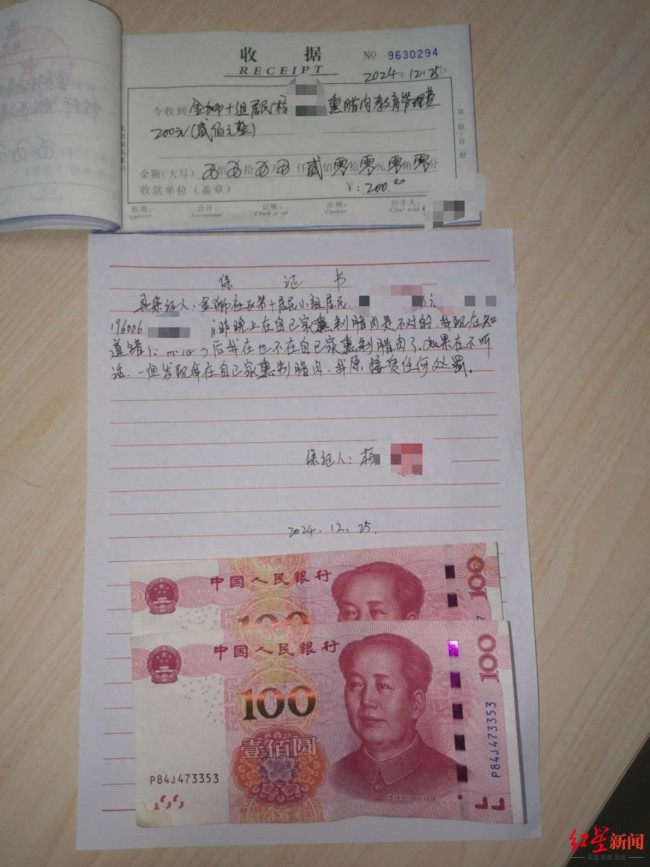 收据
NO 9630294
RECEIPT
2024年12月25日
今收到 金狮十组居民 熏腊肉教育管理费
200元(贰佰元整)
金额(大写) 佰 拾 仟贰佰零拾零元零角零分
收款单位(盖章) ¥:200.00
核准: 会计: 记账: 出纳: 经手人:
保证书
具保证人:金狮社区第十居民小组居民
196006 昨晚上在自己家熏制腊肉是不对的,我现在知
道错 后我在也不在自己家熏制腊肉了,如果在不听
话,一但发现我在自己家熏制腊肉,我愿接受任何处罚。
保证人:
2024.12.25.
中国人民银行
100
100
中国人民银行
100
100
壹佰圆
P84J473353
P84J473353
红星新闻